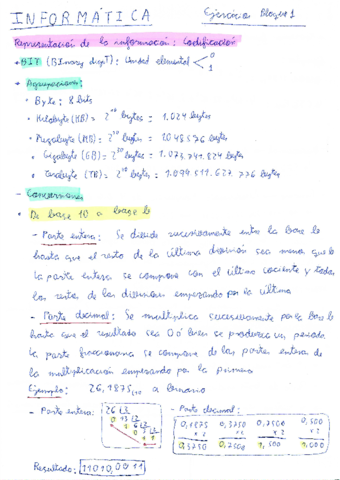 INFORMÁTICA
Ejercicios Bloque 1
Representación de la información: Codificación
• BIT (BInary digiT): Unidad elemental < 0
1
• Agrupaciones:
• Byte: 8 bits
• Kilobyte (KB) = 2^10 bytes = 1.024 bytes
(MB) = 2^20 bytes = 1048576 bytes
• Gigabyte (GB) = 2^30 bytes = 1.073.741.824 bytes
• Terabyte (TB) = 2^40 bytes = 1.099.511.627.776 bytes
- Conversiones
• De base 10 a base b
- Parte entera: Se divide sucesivamente entre la base b
hasta que el resto de la última división sea menor que b
la parte entera se compone con el último cociente y todos
los restos de las divisiones empezando por la última
- Parte decimal: Se multiplica sucesivamente por la base b
hasta que el resultado sea 0 ó bien se produzca un periodo
la parte fraccionaria se compone de las partes enteras de
la multiplicación empezando por la primera
Ejemplo: 26,1875(10 a binario
- Parte entera: - Parte decimal:
26 2
0 13 2
1 6 2
0 3 2
1 1
0,1875 0,3750 0,7500 0,500
x 2 x 2 x 2 x 2
0,3750 0,7500 1,500 1,000
Resultado: 11010,0011